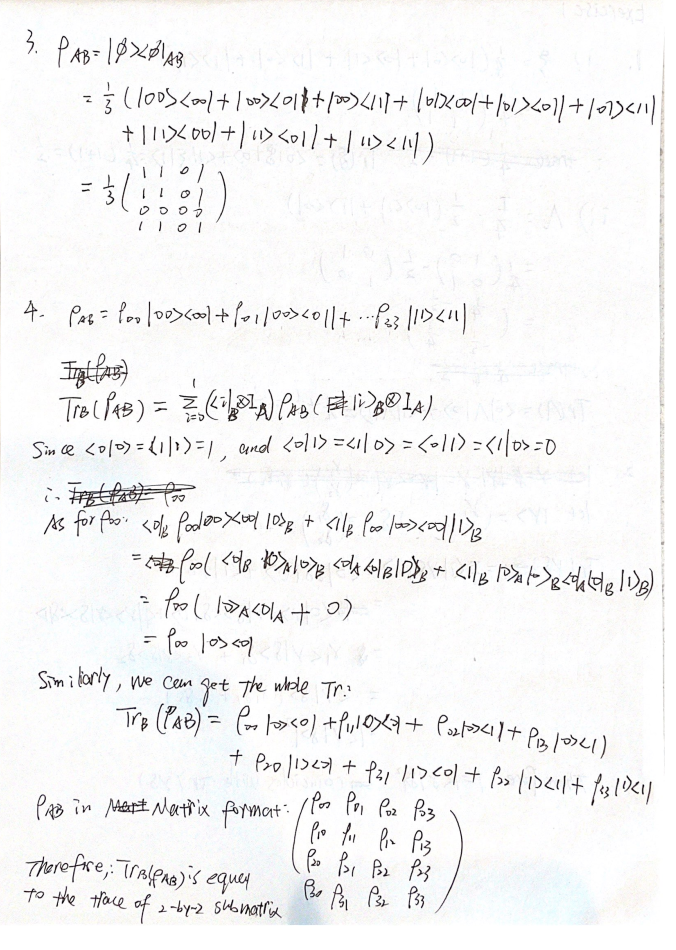 3. ρ_AB = |ϕ><ϕ|_AB
= 1/3 (|00><00| + |00><01| + |00><11| + |01><00| + |01><01| + |01><11|
+ |11><00| + |11><01| + |11><11|)
= 1/3 (
1 1 0 1
1 1 0 1
0 0 0 0
1 1 0 1
)
4. ρ_AB = ρ_00 |00><00| + ρ_01 |00><01| + ⋯ρ_33 |11><11|
Tr_B(ρ_AB)
Tr_B(ρ_AB) = Σ_{i=0}^{1} (<i|_B⊗I_A) ρ_AB (|i>_B⊗I_A)
Since <0|0> = <1|1> = 1, and <0|1> = <1|0> = <0|1> = <1|0> = 0
∴ Tr_B(ρ_AB) = ρ_00
As for ρ_00: <0|_B ρ_00|00><00| |0>_B + <1|_B ρ_00 |00><00| |1>_B
= ρ_00 ( <0|_B |0>_A|0>_B <0|_A<0|_B|0>_B + <1|_B |0>_A|0>_B<0|_A<0|_B |1>_B)
= ρ_00 ( |0>_A<0|_A + 0)
= ρ_00 |0><0|
Similiarly, we can get the whole Tr:
Tr_B (ρ_AB) = ρ_00 |0><0| + ρ_11|0><0| + ρ_02|0><1| + ρ_13 |0><1|
+ ρ_20 |1><0| + ρ_31 |1><0| + ρ_22 |1><1| + ρ_33 |1><1|
ρ_AB in Matrix format: (
ρ_00 ρ_01 ρ_02 ρ_03
ρ_10 ρ_11 ρ_12 ρ_13
ρ_20 ρ_21 ρ_22 ρ_23
ρ_30 ρ_31 ρ_32 ρ_33
)
Therefore,: Tr_B(ρ_AB) is equal
to the trace of 2-by-2 submatrix